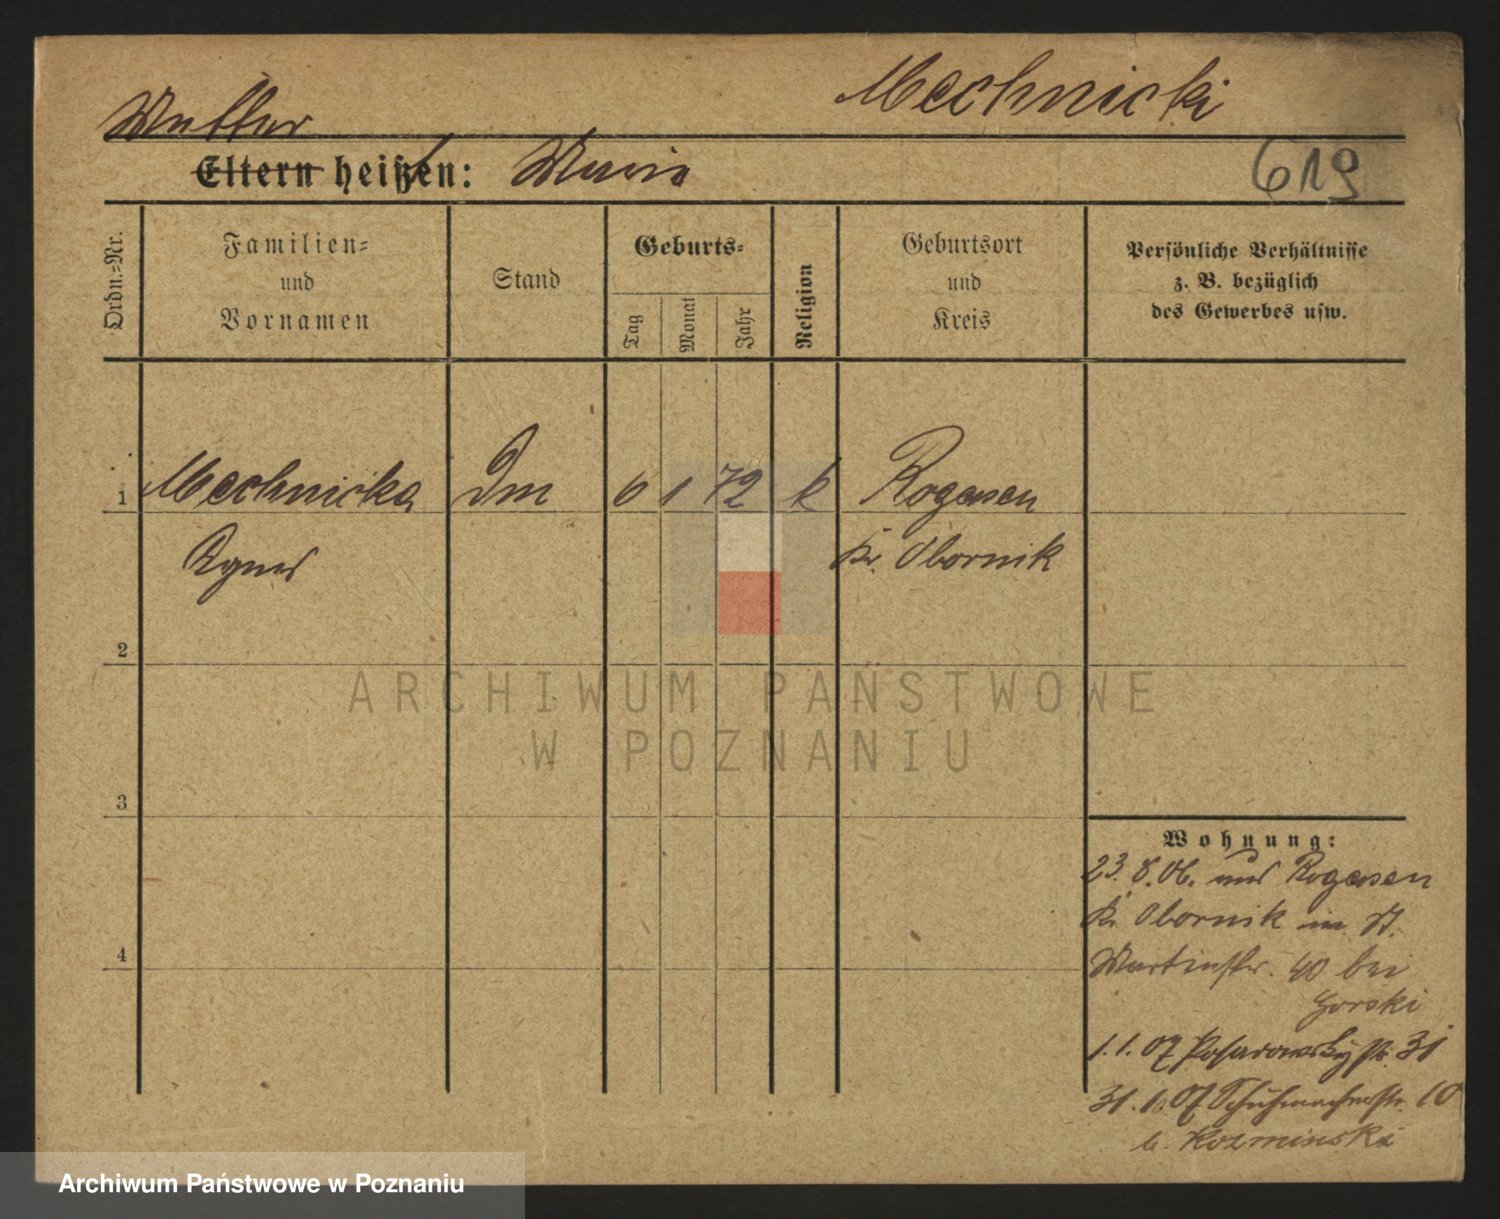 Mechnicki
Mutter
Eltern heißen: Maria
619
Ordn.-Nr.
Familien-
und
Vornamen
Stand
Geburts-
Tag
Monat
Jahr
Religion
Geburtsort
und
Kreis
Persönliche Verhältnisse
z. B. bezüglich
des Gewerbes usw.
1 Mechnicka Dm 6 1 72 k Rogasen
Agnes Kr. Obornik
2
ARCHIWUM PAŃSTWOWE
W POZNANIU
3
4
Wohnung:
23. 8. 06. aus Rogasen
Kr Obornik in St.
Martinstr. 40 bei
Gorski
1. 1. 07 31
31. 07 Schuhmacherstr. 10
b. Kozminski
Archiwum Państwowe w Poznaniu